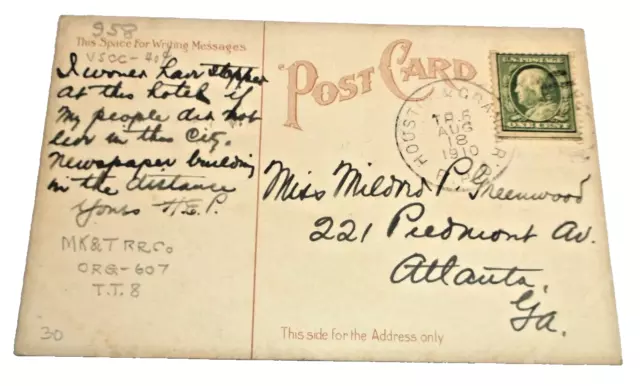 958
This Space For Writing Messages
VSOC-409
I woner have stopper
at this hotel if
my people did not
live in this City.
Newspaper building
in the distance
Yours H.E.P.
MK&T RR.Co
ORG-607
T.T.8
30
POST CARD
U.S. POSTAGE
ONE CENT
HOUSTON &
TR.6
AUG
18
1910
Miss Mildred P. Greenwood
221 Piedmont Av.
Atlanta.
Ga.
This side for the Address only